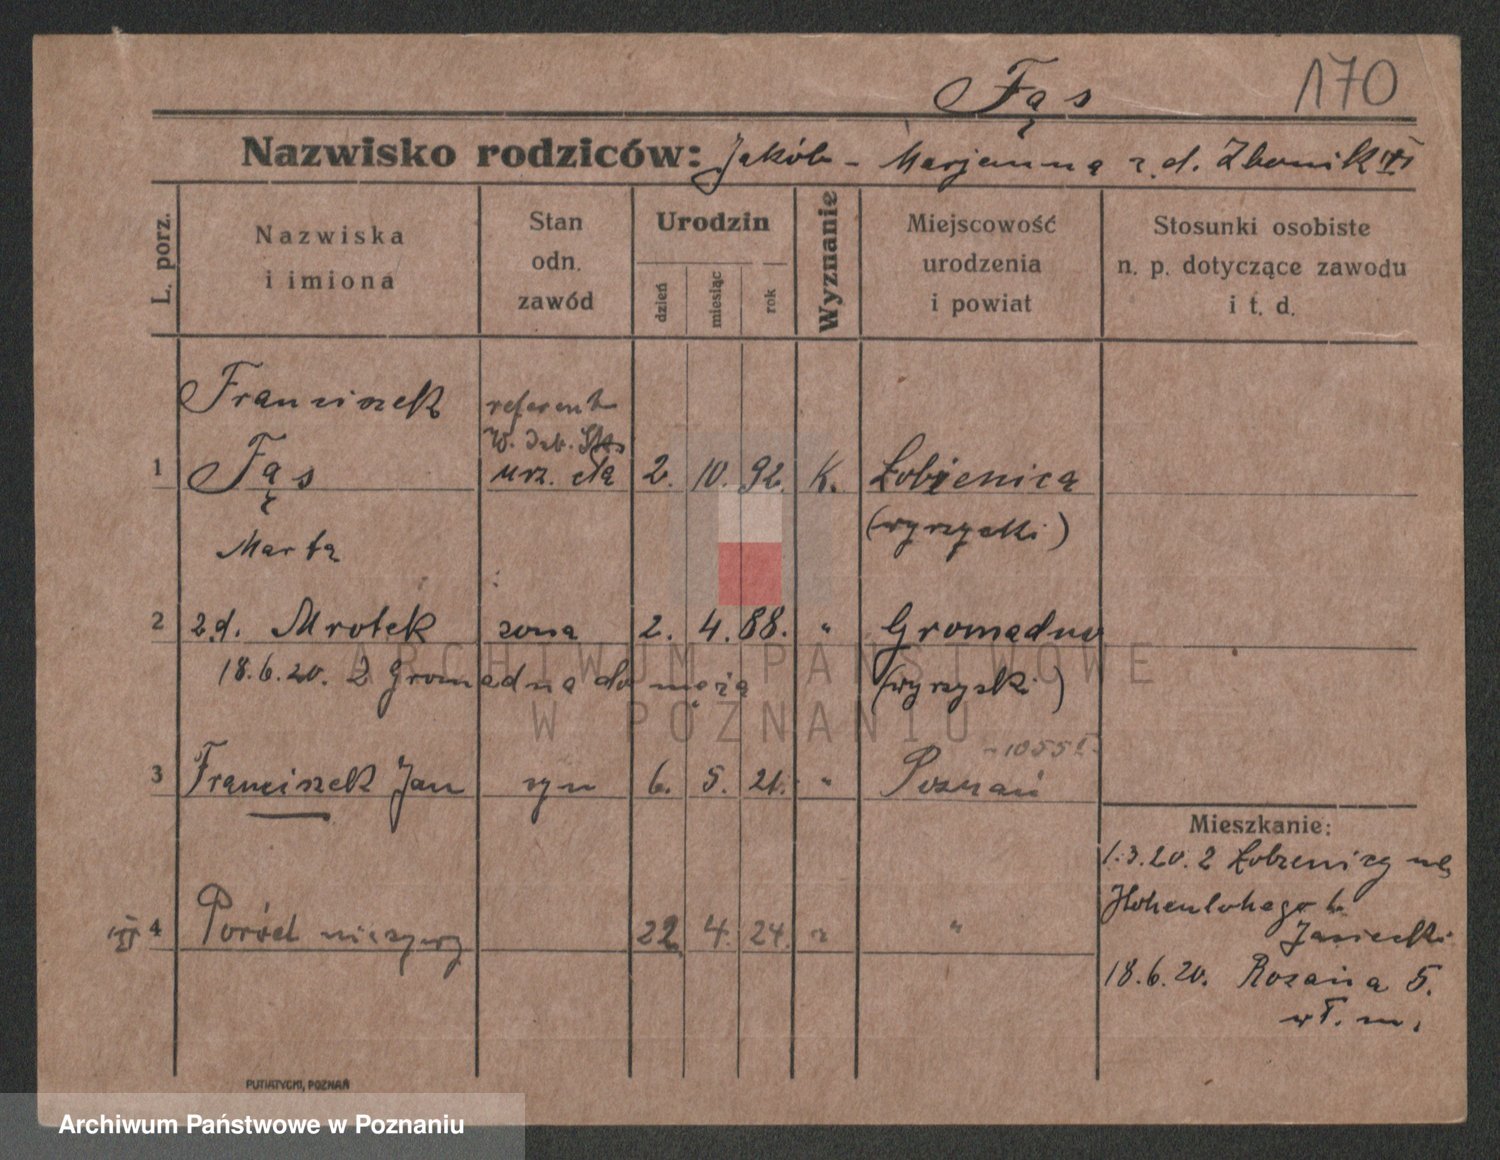 Fąs 170
Nazwisko rodziców: Jakób - Marjanna z d. Zbonik
L. porz.
Nazwiska i imiona
Stan odn. zawód
Urodzin
dzień
miesiąc
rok
Wyznanie
Miejscowość urodzenia i powiat
Stosunki osobiste n. p. dotyczące zawodu i t. d.
Franciszek referent
1 Fąs urz. cła 2. 10. 92. K. Łobżenica
(wyrzyski)
Marta
2 z d. Mrotek żona 2. 4. 88. " Gromadno
18.6.20. z Gromadna do męża (wyrzyski)
3 Franciszek Jan syn 6. 5. 21. " Poznań
Mieszkanie:
1.3.20. z Łobżenicy na
Hohenlohego
Jasiecki
4 Poród nieżywy 22 4. 24. "
18.6.20. Rożana 5.
wł. m.
PUTIATYCKI, POZNAŃ
ARCHIWUM PAŃSTWOWE
W POZNANIU
Archiwum Państwowe w Poznaniu